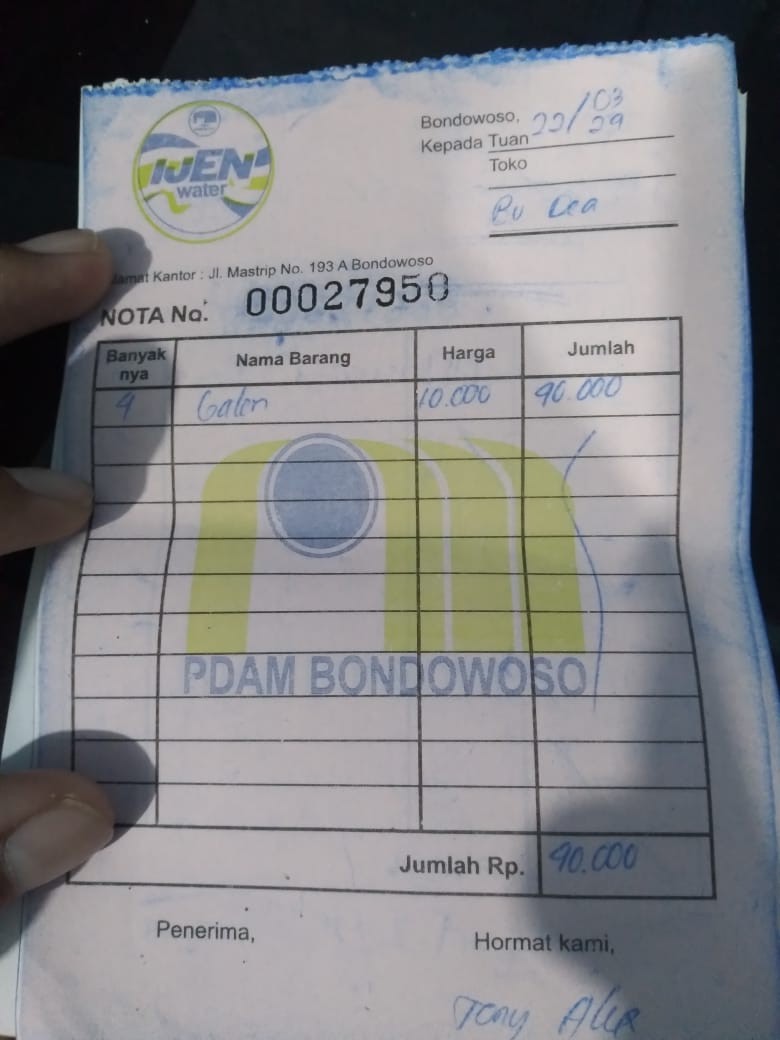 IJEN
water
Bondowoso, 22/03
29
Kepada Tuan
Toko
Bu Dea
Alamat Kantor : Jl. Mastrip No. 193 A Bondowoso
NOTA No. 00027950
Banyak nya Nama Barang Harga Jumlah
9 Galon 10.000 90.000
PDAM BONDOWOSO
Jumlah Rp. 90.000
Penerima,
Hormat kami,
Tony